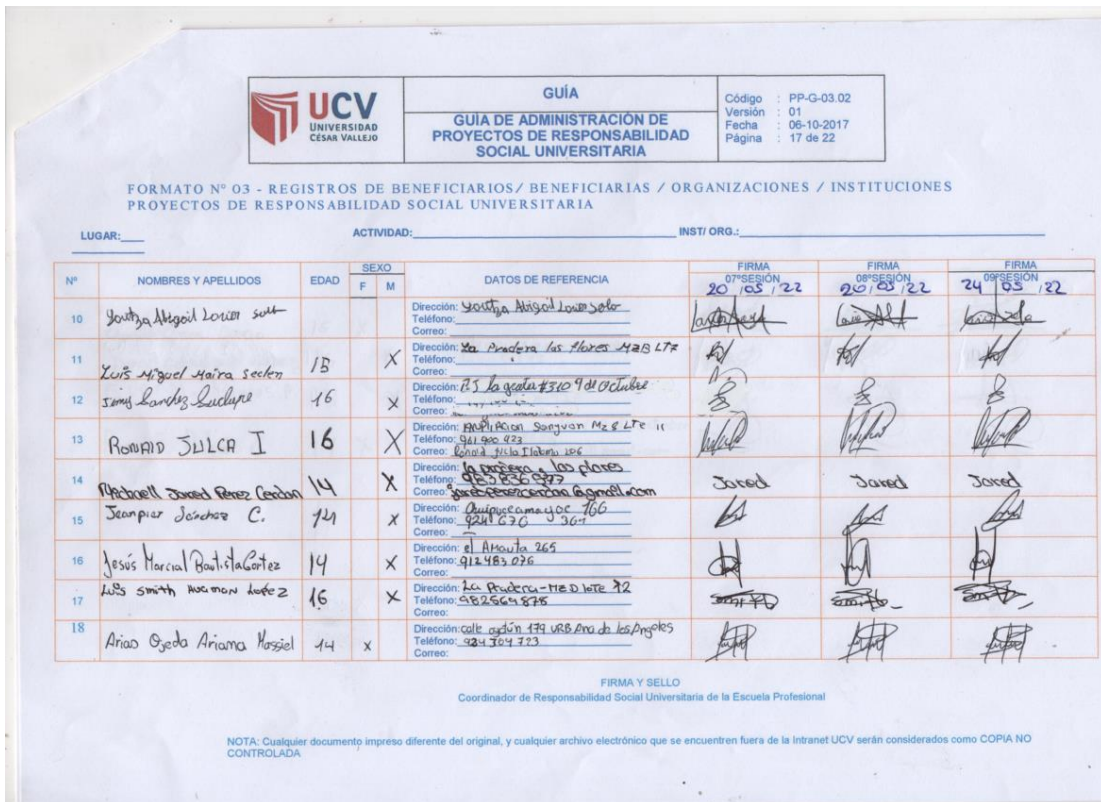 UCV
UNIVERSIDAD
CÉSAR VALLEJO
GUÍA
GUÍA DE ADMINISTRACIÓN DE
PROYECTOS DE RESPONSABILIDAD
SOCIAL UNIVERSITARIA
Código : PP-G-03.02
Versión : 01
Fecha : 06-10-2017
Página : 17 de 22
FORMATO Nº 03 - REGISTROS DE BENEFICIARIOS/ BENEFICIARIAS / ORGANIZACIONES / INSTITUCIONES
PROYECTOS DE RESPONSABILIDAD SOCIAL UNIVERSITARIA
LUGAR: ACTIVIDAD: INST/ ORG.:
Nº NOMBRES Y APELLIDOS EDAD SEXO F M DATOS DE REFERENCIA FIRMA 07ºSESIÓN 20/05/22 FIRMA 08ºSESIÓN 20/05/22 FIRMA 09ºSESIÓN 24/05/22
10 Abigail Dirección: Abigail
Teléfono:
Correo:
11 Luis Miguel Maira seclen 15 X Dirección: La Pradera las flores MZB LT7
Teléfono:
Correo:
12 Jimy Sanchez Suclupe 16 X Dirección: P.J la #310 9 de Octubre
Teléfono:
Correo:
13 RONALD JULCA I 16 X Dirección: Mz 8 LTe 11
Teléfono: 961 900 423
Correo: Ronald
14 Jared Perez Cerdan 14 X Dirección: la pradera
Teléfono: 983836377
Correo: jaredperezcerdan@gmail.com
Jared Jared Jared
15 Jeanpier Sánchez C. 14 X Dirección: 166
Teléfono: 924 676 361
Correo:
16 Jesús Marcial Bautista Cortez 14 X Dirección: el Amauta 265
Teléfono: 912483076
Correo:
17 Luis smith Huaman Lopez 16 X Dirección: La Pradera-MZD lote 12
Teléfono: 982569878
Correo:
18 Arias Ojeda Ariama Massiel 14 X Dirección: calle 179 URB Ana de los Angeles
Teléfono: 924309723
Correo:
FIRMA Y SELLO
Coordinador de Responsabilidad Social Universitaria de la Escuela Profesional
NOTA: Cualquier documento impreso diferente del original, y cualquier archivo electrónico que se encuentren fuera de la Intranet UCV serán considerados como COPIA NO
CONTROLADA